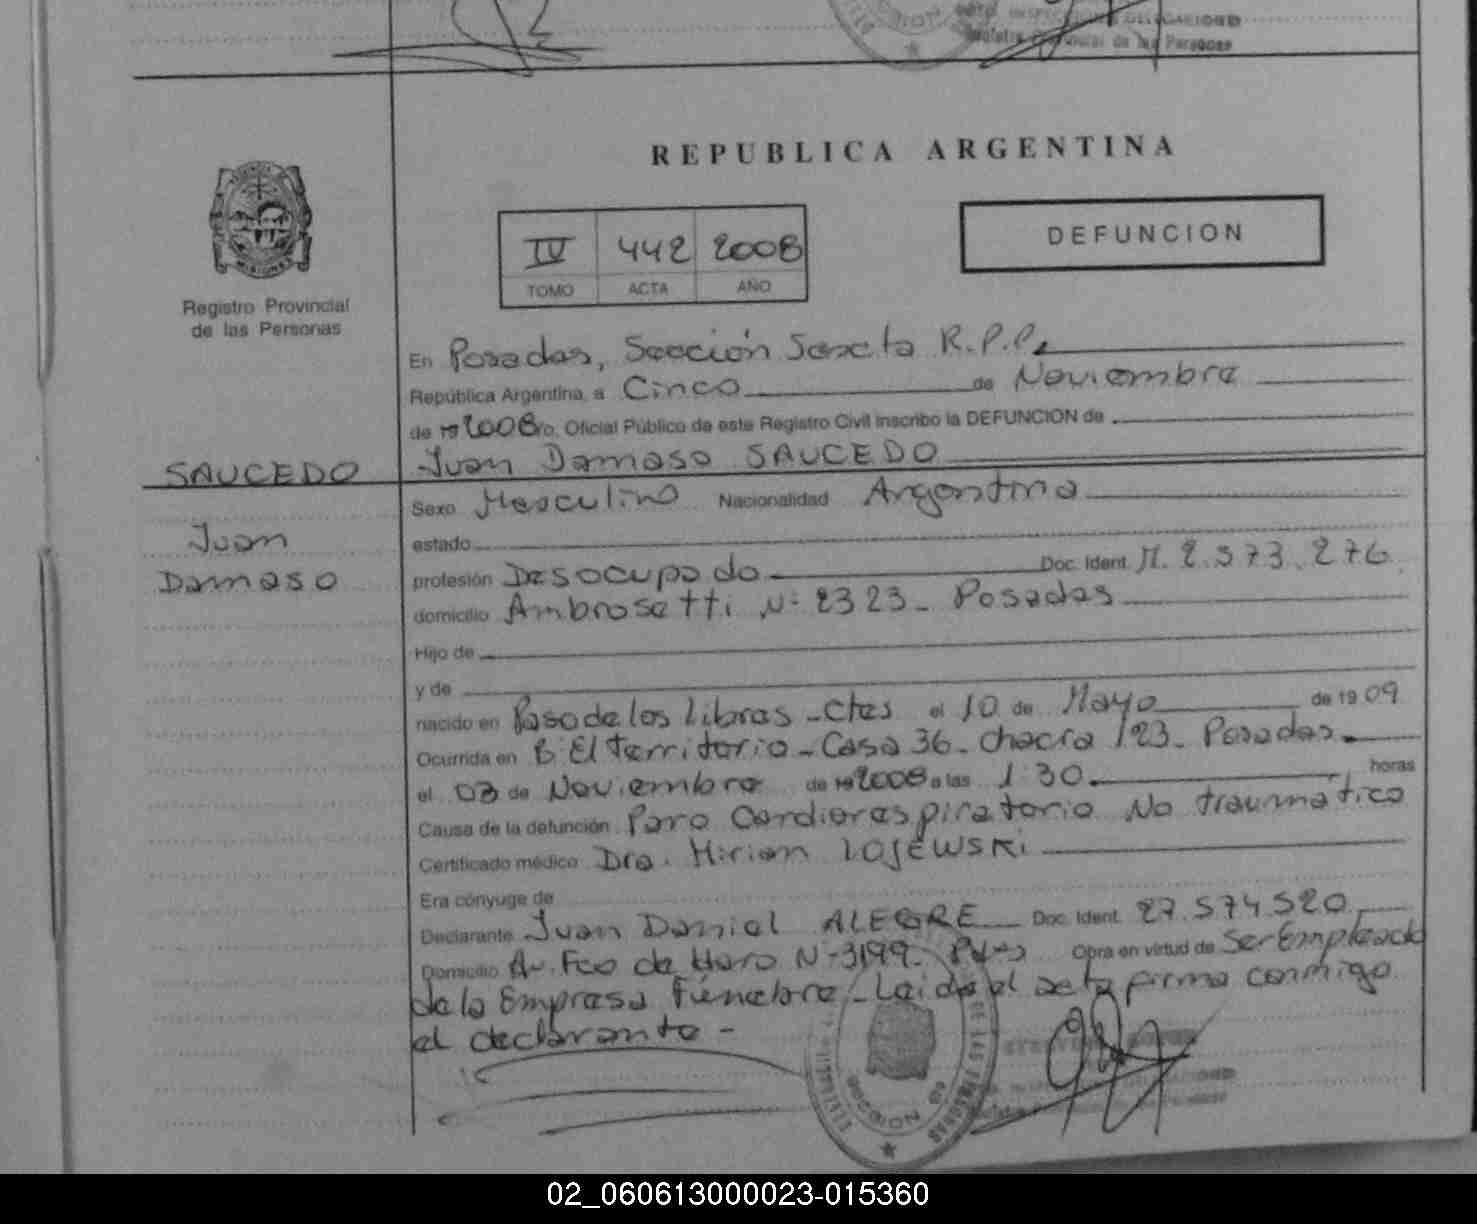 REPUBLICA ARGENTINA
IV 442 2008
TOMO ACTA AÑO
DEFUNCION
MISIONES
Registro Provincial
de las Personas
En Posadas, Sección Sexta R.P.P.
República Argentina, a Cinco de Noviembre
de 19 2008 yo, Oficial Público de este Registro Civil inscribo la DEFUNCION de
SAUCEDO
Juan Damaso SAUCEDO
Juan
Damaso
Sexo Masculino Nacionalidad Argentina
estado
profesión Desocupado Doc. Ident. M. 2.573.276
domicilio Ambrosetti N° 2323 - Posadas
Hijo de
y de
nacido en Paso de los Libres - Ctes el 10 de Mayo de 19 09
Ocurrida en B° El Territorio - Casa 36 - Chacra 123 - Posadas
el 03 de Noviembre de 19 2008 a las 1:30 horas
Causa de la defunción Paro Cardiorespiratorio No traumatico
Certificado médico Dra. Mirian LOJEWSKI
Era cónyuge de
Declarante Juan Daniel ALEGRE Doc. Ident. 27.574.520
Domicilio Av. Fco de Haro N° 3199 - Pdas Obra en virtud de Ser Empleado
de la Empresa Fúnebre - Leida el acta firma conmigo
el declarante -
02_060613000023-015360